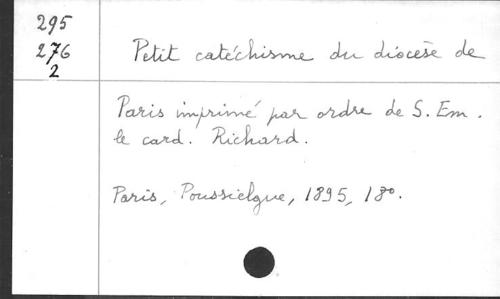 295
276
2
Petit catéchisme du diocèse de
Paris imprimé par ordre de S. Em.
le card. Richard.
Paris, Poussielgue, 1895, 18º.